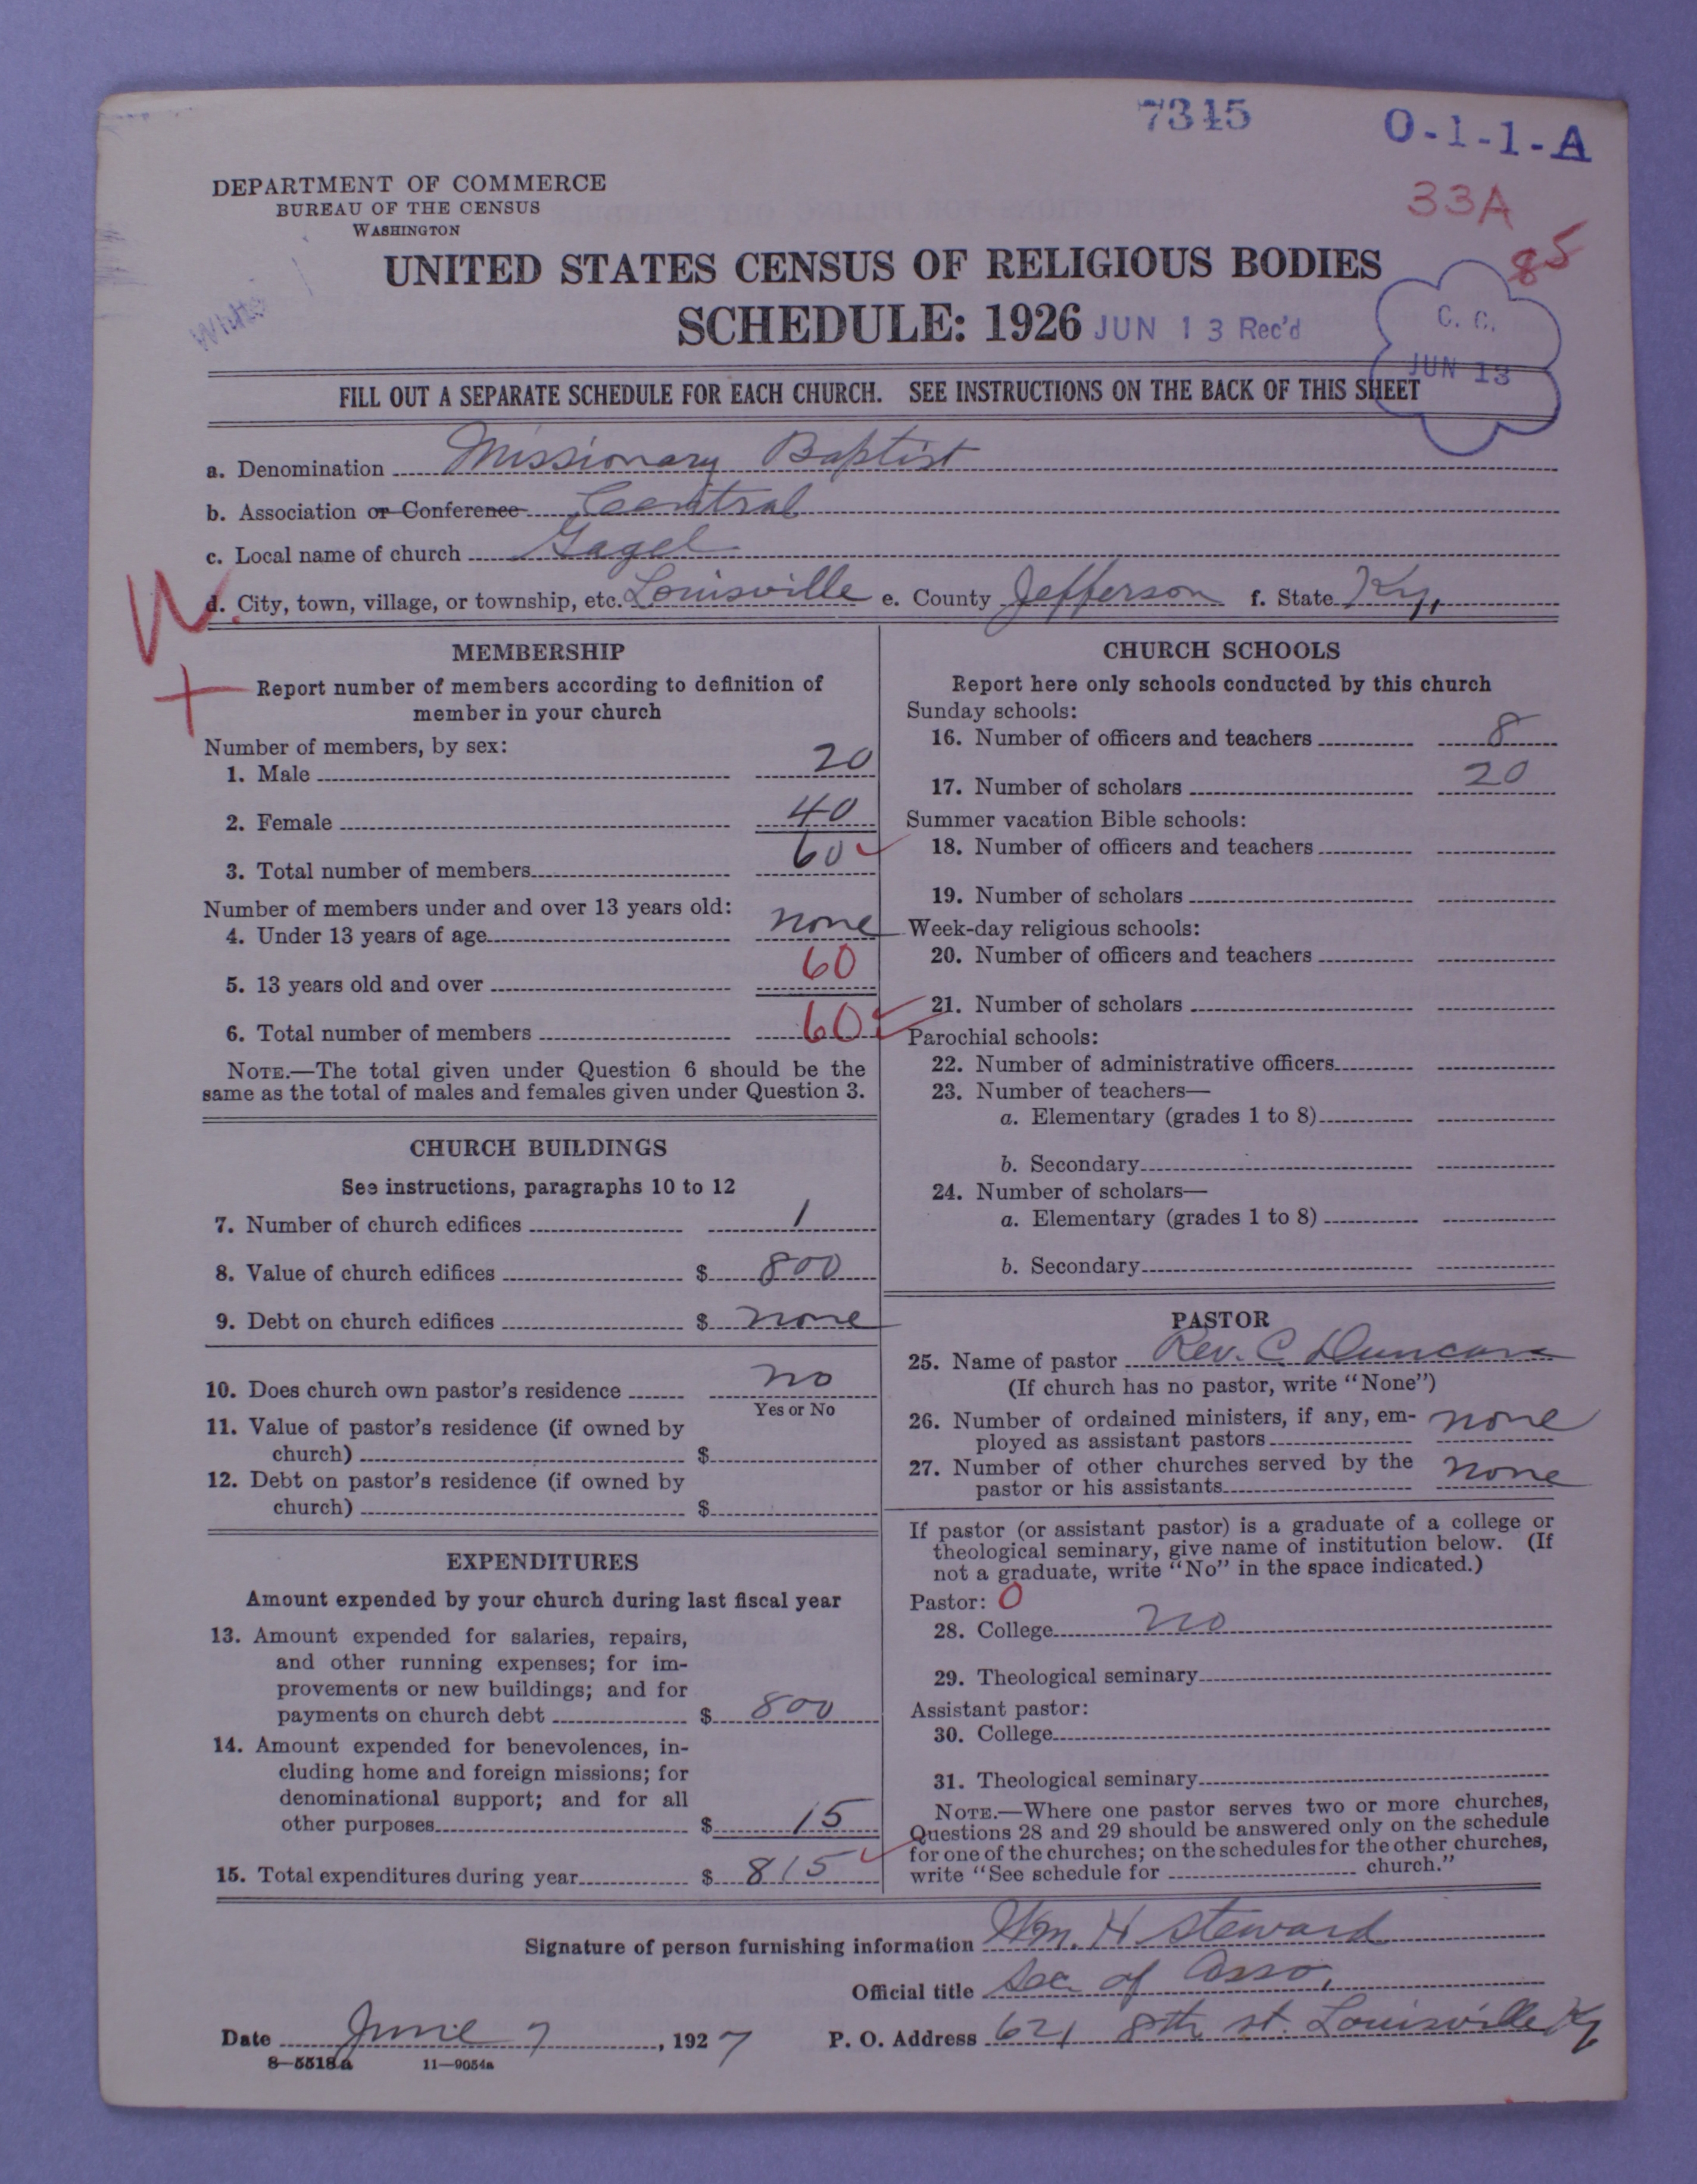 7315
O-1-1-A
33A
85
DEPARTMENT OF COMMERCE
BUREAU OF THE CENSUS
WASHINGTON
White
UNITED STATES CENSUS OF RELIGIOUS BODIES
SCHEDULE: 1926 JUN 13 Rec'd
C. C.
JUN 13
FILL OUT A SEPARATE SCHEDULE FOR EACH CHURCH. SEE INSTRUCTIONS ON THE BACK OF THIS SHEET
a. Denomination Missionary Baptist
b. Association or Conference Central
c. Local name of church Gagel
d. City, town, village, or township, etc. Louisville e. County Jefferson f. State Ky,
MEMBERSHIP
Report number of members according to definition of
member in your church
Number of members, by sex:
1. Male 20
2. Female 40
3. Total number of members 60
Number of members under and over 13 years old:
4. Under 13 years of age none
5. 13 years old and over 60
6. Total number of members 60
NOTE.—The total given under Question 6 should be the
same as the total of males and females given under Question 3.
CHURCH BUILDINGS
See instructions, paragraphs 10 to 12
7. Number of church edifices 1
8. Value of church edifices $ 800
9. Debt on church edifices $ none
10. Does church own pastor's residence no
Yes or No
11. Value of pastor's residence (if owned by
church) $
12. Debt on pastor's residence (if owned by
church) $
EXPENDITURES
Amount expended by your church during last fiscal year
13. Amount expended for salaries, repairs,
and other running expenses; for im-
provements or new buildings; and for
payments on church debt $ 800
14. Amount expended for benevolences, in-
cluding home and foreign missions; for
denominational support; and for all
other purposes $ 15
15. Total expenditures during year $ 815
CHURCH SCHOOLS
Report here only schools conducted by this church
Sunday schools:
16. Number of officers and teachers 8
17. Number of scholars 20
Summer vacation Bible schools:
18. Number of officers and teachers
19. Number of scholars
Week-day religious schools:
20. Number of officers and teachers
21. Number of scholars
Parochial schools:
22. Number of administrative officers
23. Number of teachers—
a. Elementary (grades 1 to 8)
b. Secondary
24. Number of scholars—
a. Elementary (grades 1 to 8)
b. Secondary
PASTOR
25. Name of pastor Rev. C Duncan
(If church has no pastor, write "None")
26. Number of ordained ministers, if any, em-
ployed as assistant pastors none
27. Number of other churches served by the
pastor or his assistants none
If pastor (or assistant pastor) is a graduate of a college or
theological seminary, give name of institution below. (If
not a graduate, write "No" in the space indicated.)
Pastor: 0
28. College no
29. Theological seminary
Assistant pastor:
30. College
31. Theological seminary
NOTE.—Where one pastor serves two or more churches,
Questions 28 and 29 should be answered only on the schedule
for one of the churches; on the schedules for the other churches,
write "See schedule for church."
Signature of person furnishing information Wm. H Steward
Official title Sec of Asso.
Date June 7, 1927 P. O. Address 621 8th st. Louisville Ky
8—5518a 11—9054a